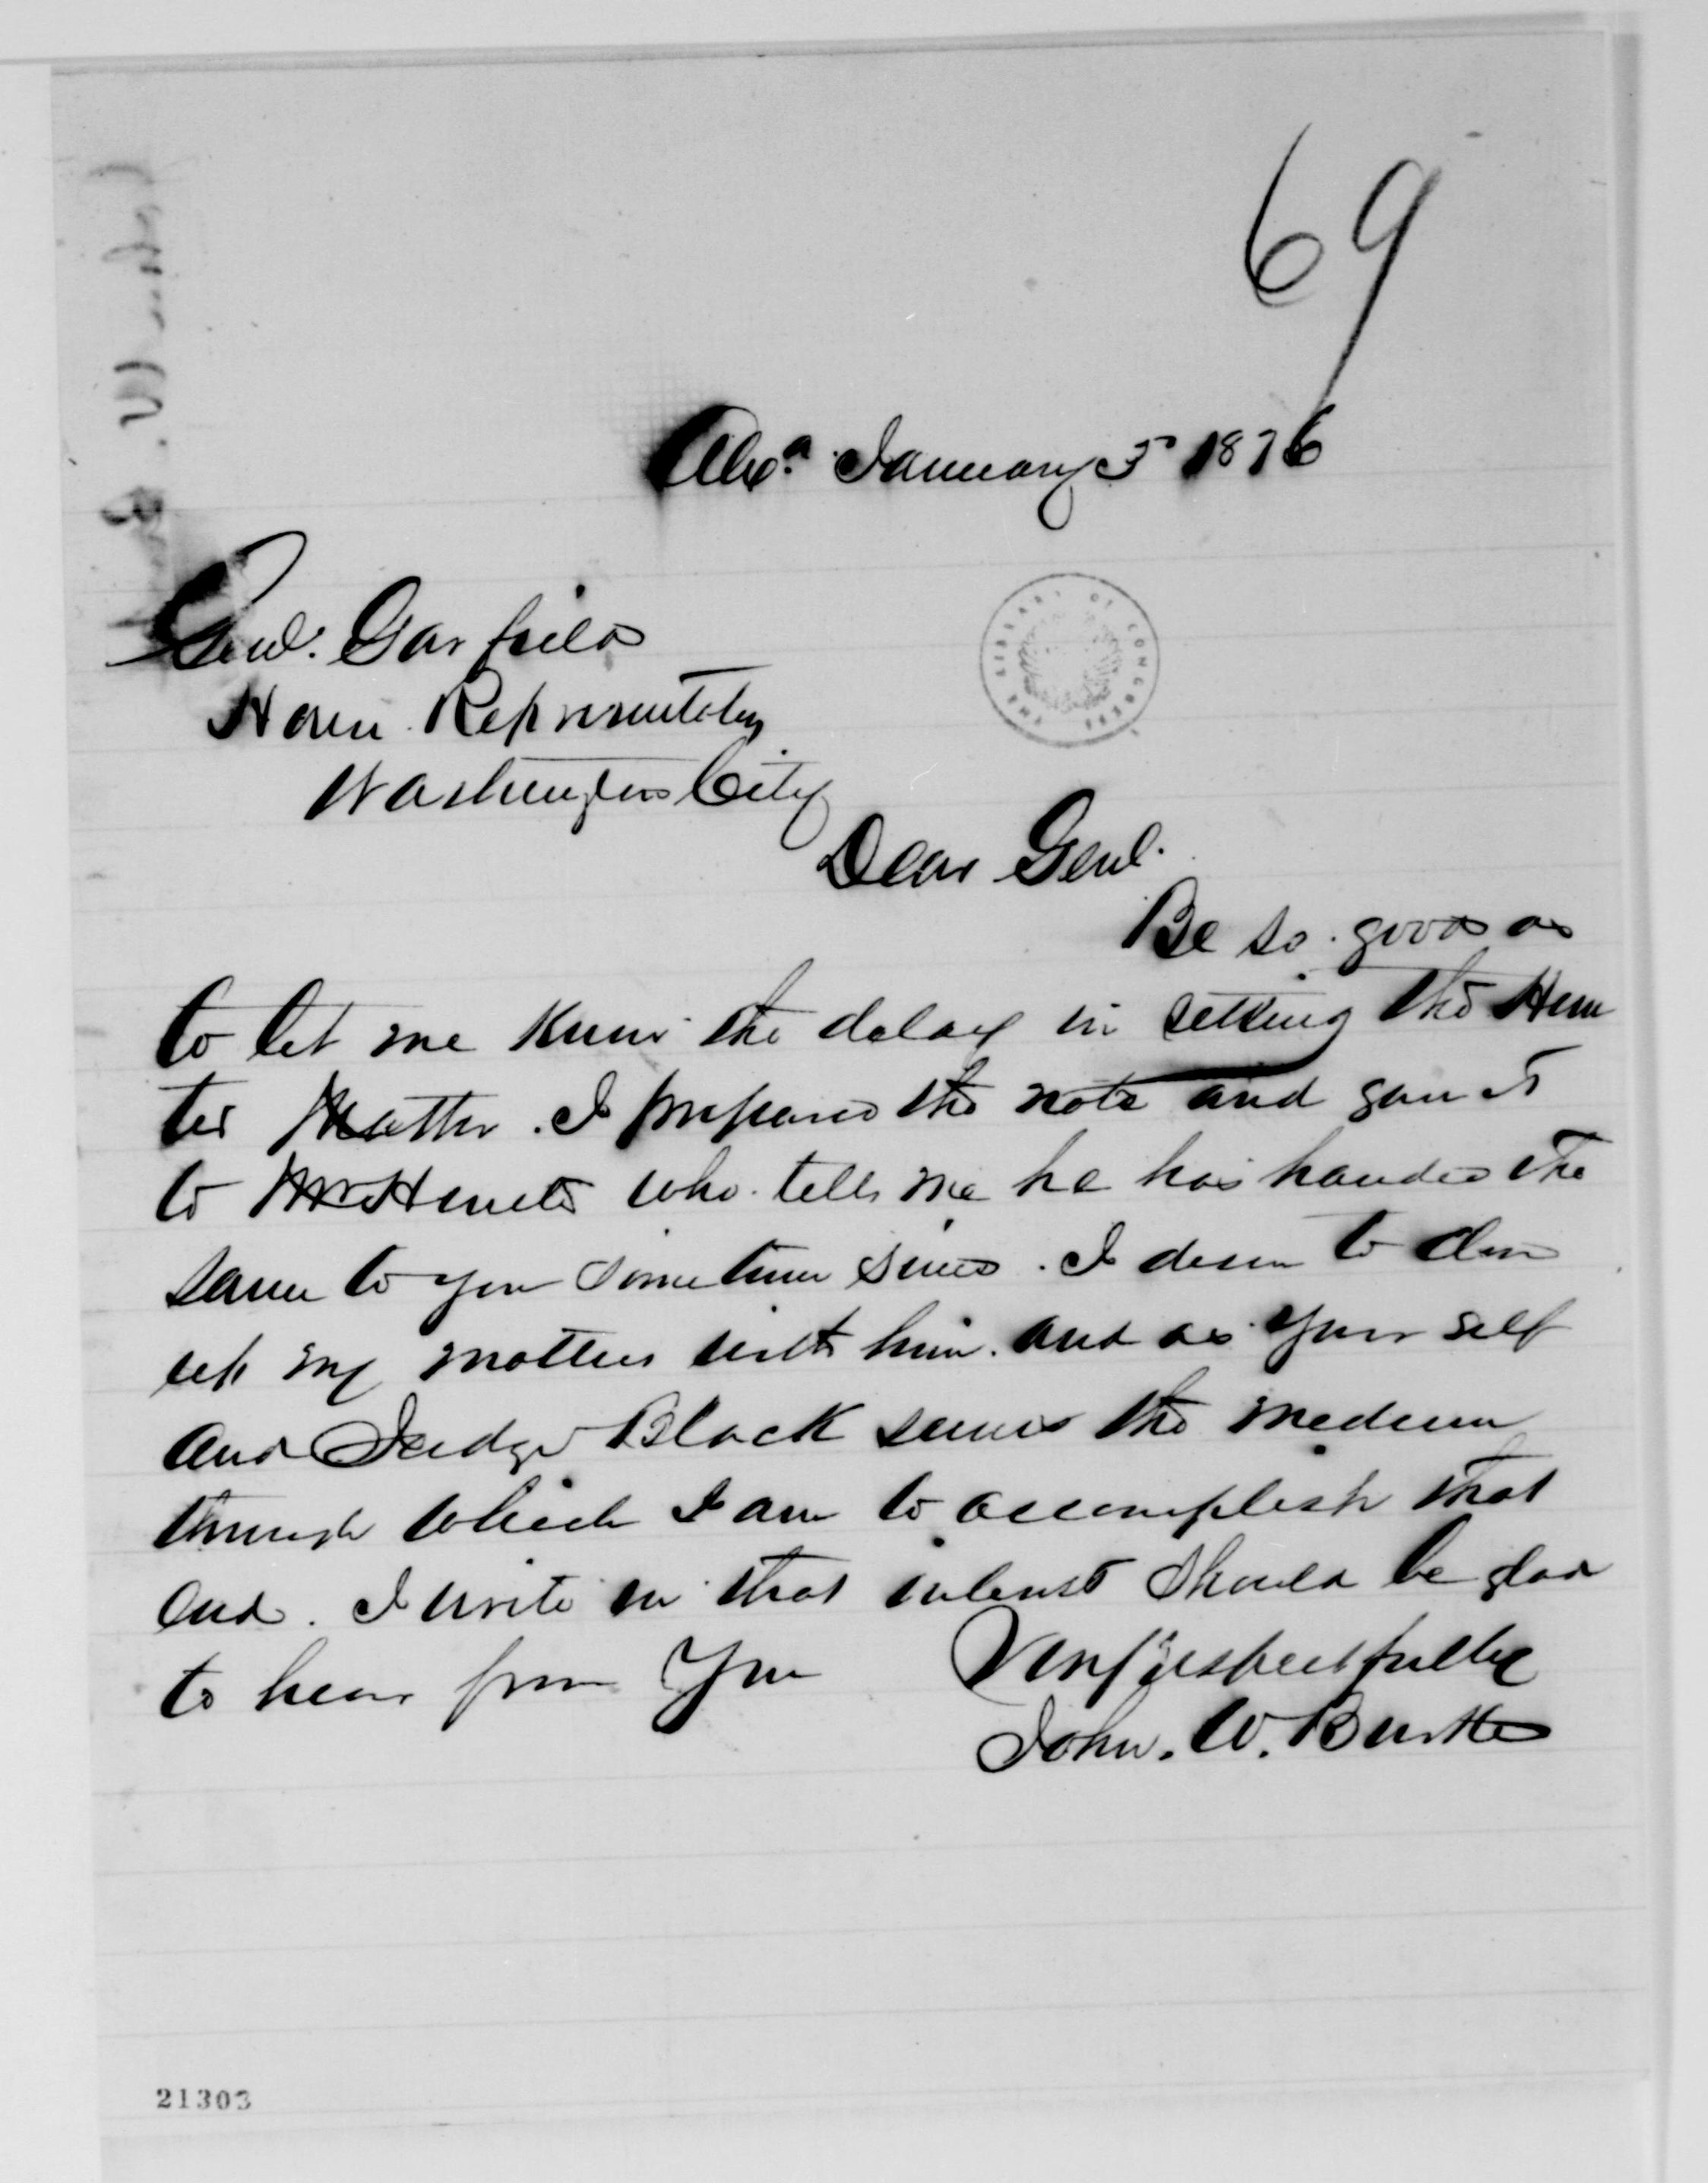 69
Alexa. January 5 1876
Genl. Garfield
House Representatives
Washington City
Dear Genl.
Be so good as
to let me know the delay in settling the Hun
ter Matter. I prepared the note and gave it
to Mr Hunter who tells me he has handed the
same to you sometime since. I desire to close
up my matters with him. and as your self
and Judge Black seems the medium
through which I am to accomplish that
end. I write in that interest should be glad
to hear from you
Very respectfully
John. W. Burke
THE LIBRARY OF CONGRESS
21303